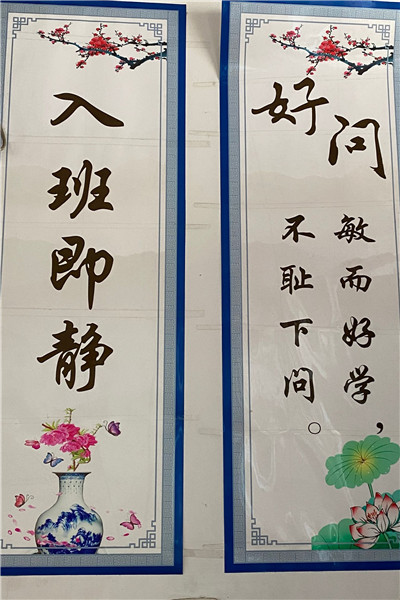 入班即静
好问
敏而好学，
不耻下问。